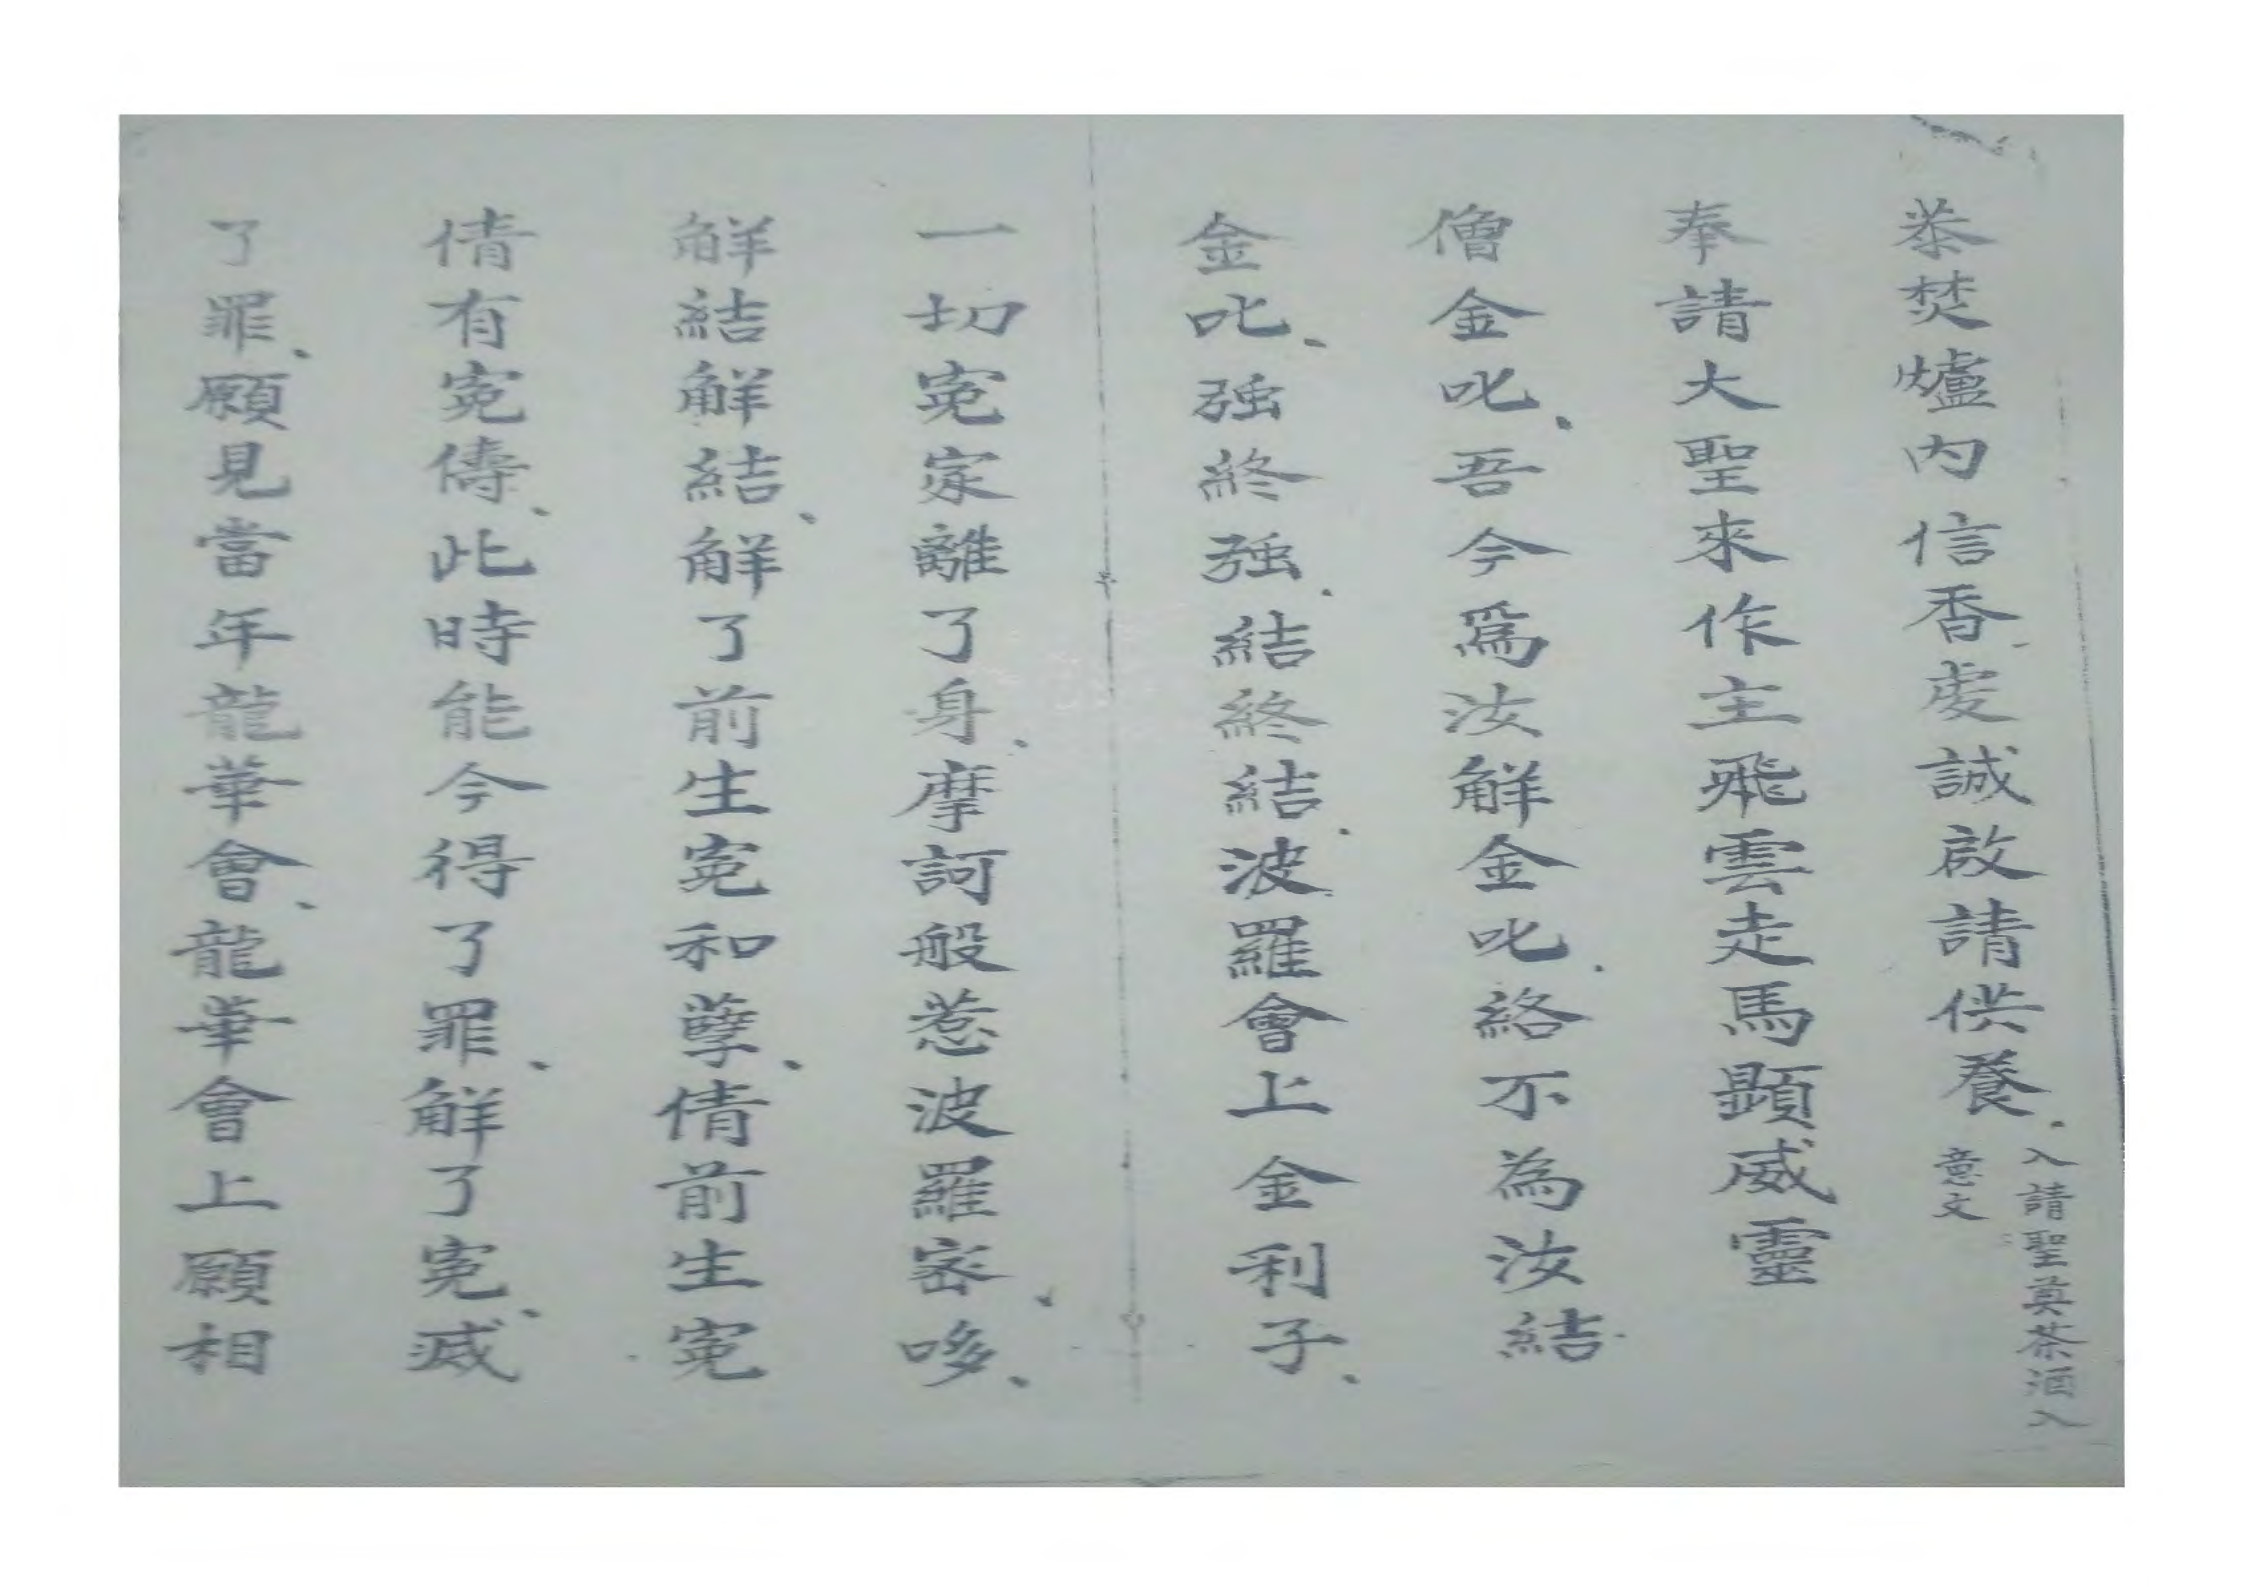 恭焚爐內信香虔誠啟請供養
入請聖奠茶酒入
意文
奉請大聖來作主飛雲走馬顕威靈
僧金叱、吾今爲汝觧金叱、絡不為汝結
金叱、强終强、結終結、波羅會上金利子、
一切寃家離了身、摩訶般惹波羅密哆、
觧結觧結、觧了前生寃和孽、倩前生寃
倩有寃儔、此時能今得了罪、觧了寃、烕
了罪、願見當年龍華會、龍華會上願相